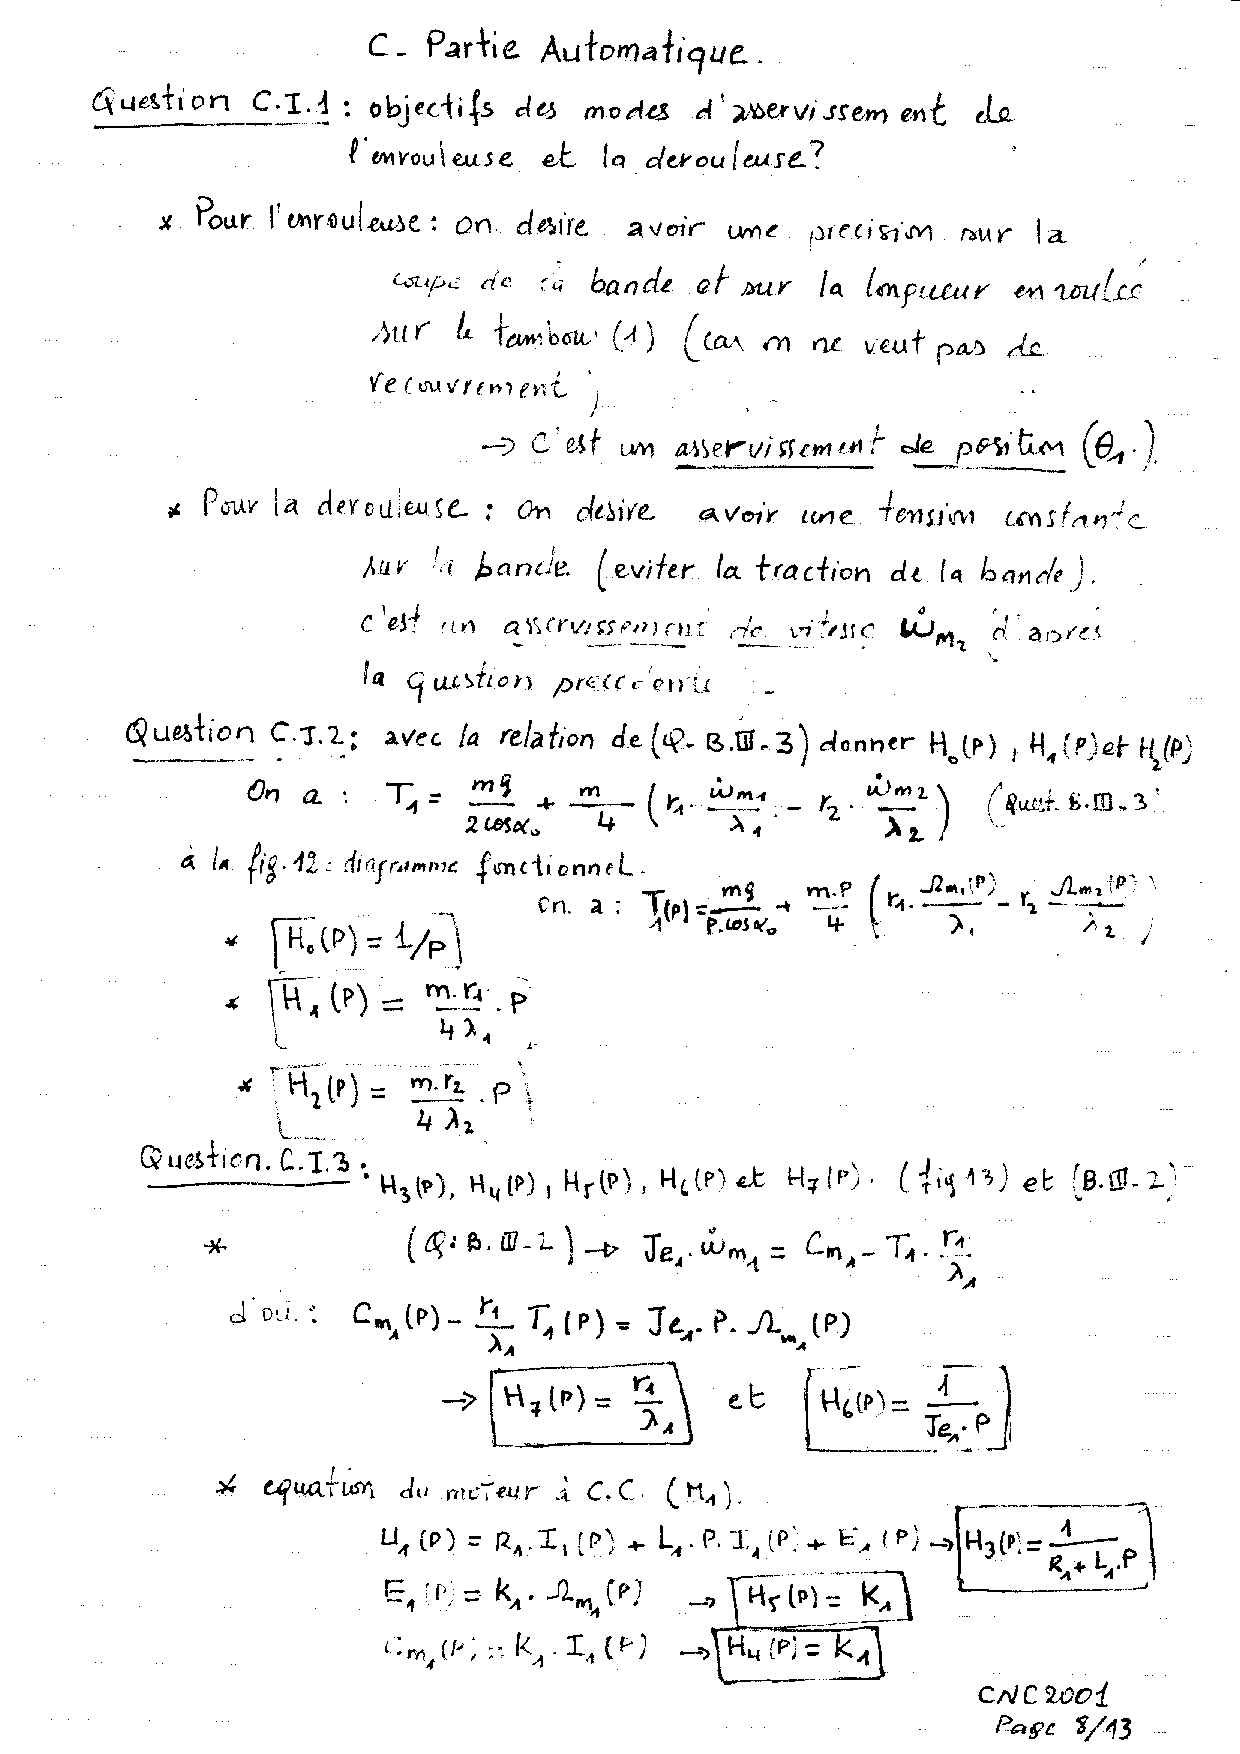 C - Partie Automatique.
Question C.I.1 : objectifs des modes d'asservissement de
l'enrouleuse et la derouleuse?
* Pour l'enrouleuse : on desire avoir une precision sur la
coupe de la bande et sur la longueur enroulée
sur le tambour (1) (car on ne veut pas de
recouvrement)
→ C'est un asservissement de position (θ₁.).
* Pour la derouleuse : on desire avoir une tension constante
sur la bande. (eviter la traction de la bande).
c'est un asservissement de vitesse ẇ_M₂ d'apres
la question precedente
Question C.I.2 : avec la relation de (Q- B.III-3) donner H₀(P), H₁(P) et H₂(P)
On a : T₁ = mg/(2cosα₀) + m/4 (r₁. ẇm₁/λ₁ - r₂. ẇm₂/λ₂) (Quest. B.III-3)
à la fig.12 : diagramme fonctionnel.
on a : T₁(P) = mg/(P.cosα₀) + m.P/4 (r₁. Ωm₁(P)/λ₁ - r₂ Ωm₂(P)/λ₂)
* H₀(P) = 1/P
* H₁(P) = m.r₁/(4λ₁) . P
* H₂(P) = m.r₂/(4λ₂) . P
Question.C.I.3 : H₃(P), H₄(P), H₅(P), H₆(P) et H₇(P). (fig 13) et (B.III-2)
* (Q: B.III-2) → Je₁.ẇm₁ = Cm₁ - T₁. r₁/λ₁
d'où : Cm₁(P) - r₁/λ₁ T₁(P) = Je₁. P. Ωm₁(P)
→ H₇(P) = r₁/λ₁ et H₆(P) = 1/(Je₁.P)
* equation du moteur à C.C. (M₁).
U₁(P) = R₁.I₁(P) + L₁.P.I₁(P) + E₁(P) → H₃(P) = 1/(R₁+L₁.P)
E₁(P) = K₁. Ωm₁(P) → H₅(P) = K₁
Cm₁(P) = K₁. I₁(P) → H₄(P) = K₁
CNC2001
Page 8/13